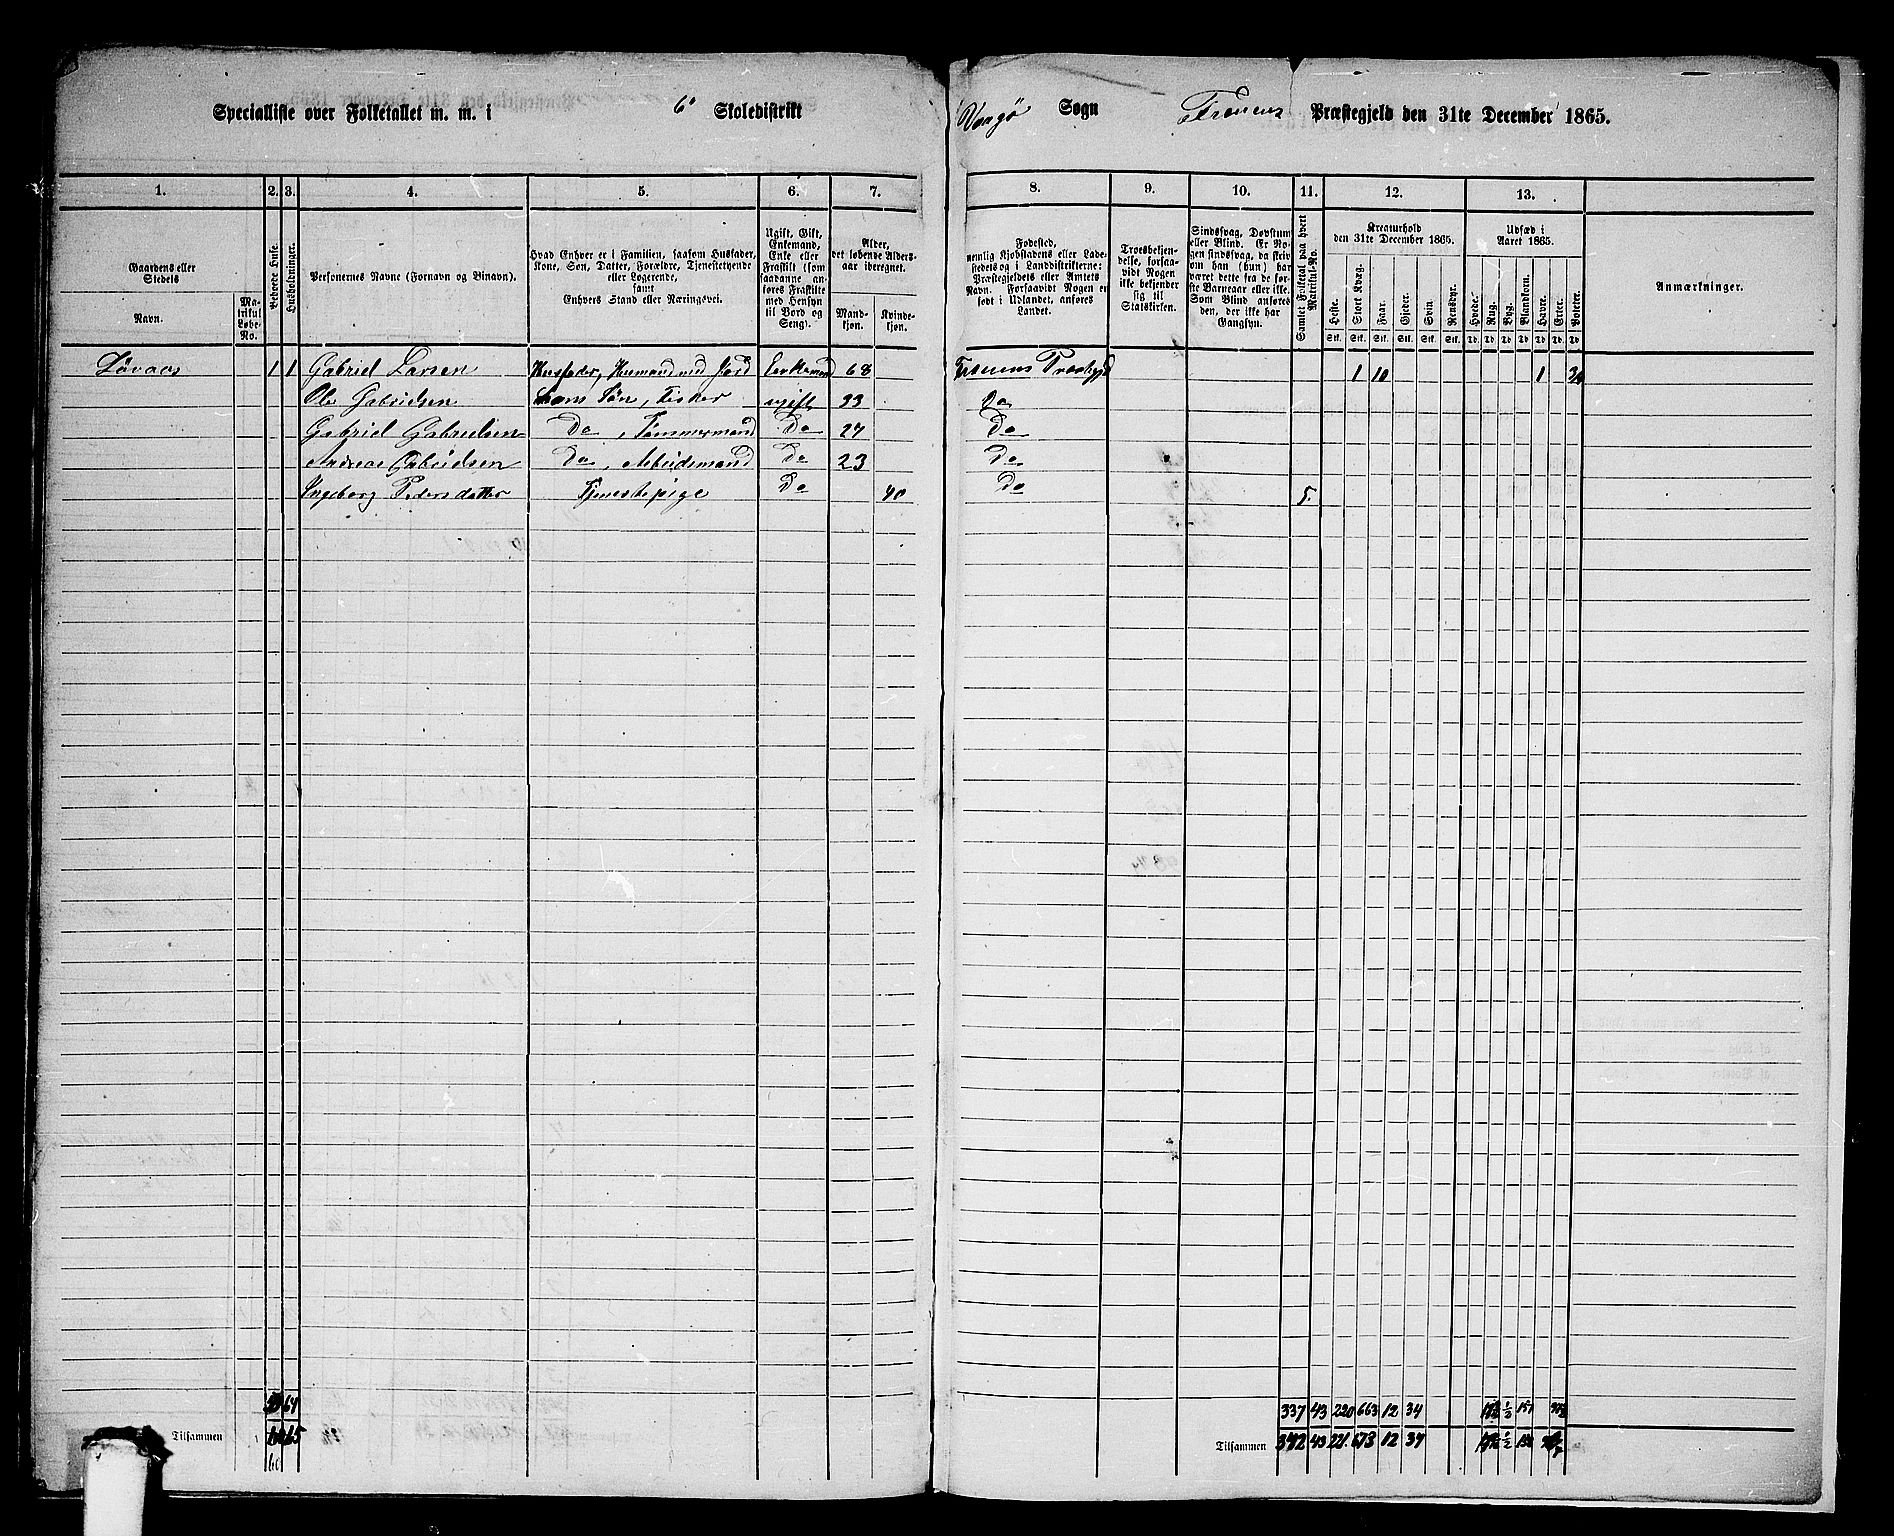 Specialliste over Folketallet m. m. i 6' Skoledistrikt Vaagø Sogn Præstegjeld den 31te December 1865.
1. 2. 3. 4. 5. 6. 7. 8. 9. 10. 11. 12. 13.
Gaardens eller Stedets
Navn.
Matrikul Løbe-No.
Beboede Huse.
Husholdninger.
Personernes Navne (Fornavn og Binavn).
Hvad Enhver er i Familien, saasom Husfader,
Kone, Søn, Datter, Forældre, Tjenestetyende
eller Logerende,
samt
Enhvers Stand eller Næringsvei.
Ugift, Gift,
Enkemand,
Enke eller
Fraskilt (som
saadanne an-
føres Fraskilte
med Hensyn
til Bord og
Seng).
Alder,
det løbende Alders-
aar iberegnet.
Mand-
kjøn.
Kvinde-
kjøn.
Fødested,
nemlig Kjøbstadens eller Lade-
stedets og i Landdistrikterne:
Præstegjeldets eller Amtets
Navn. Forsaavidt Nogen er
født i Udlandet, anføres
Landet.
Troesbekjen-
delse, forsaa-
vidt Nogen
ikke bekjender
sig til
Statskirken.
Sindssvag, Døvstum
eller Blind. Er No-
gen sindssvag, da skriv
om han (hun) har
været dette fra de før-
ste Barneaar eller ikke.
Som Blind anføres
den, der ikke har
Gangsyn.
Samlet Folketal paa hvert
Matrikul-No.
Kreaturhold
den 31te December 1865.
Heste. Stort Kvæg. Faar. Gjeder. Svin. Rensdyr.
Stk. Stk. Stk. Stk. Stk. Stk.
Udsæd i
Aaret 1865.
Hvede. Rug. Byg. Blandkorn. Havre. Erter. Poteter.
Td. Td. Td. Td. Td. Td. Td.
Anmærkninger.
Løvaas 1 1 Gabriel Larsen Husfader, Husmand med Jord Enkemand 68 1 10 1
Ole Gabrielsen hans Søn, Fisker ugift 33 Do
Gabriel Gabrielsen Do, Tømmermand Do 27 Do
Andreas Gabrielsen Do, Arbeidsmand Do 23 Do
Ingeborg Pedersdatter Tjenestepige Do 40 Do 5.
64 337 43 220 663 12 34 ½ 151
Tilsammen 65 Tilsammen 342 43 221 673 12 34 ½
60